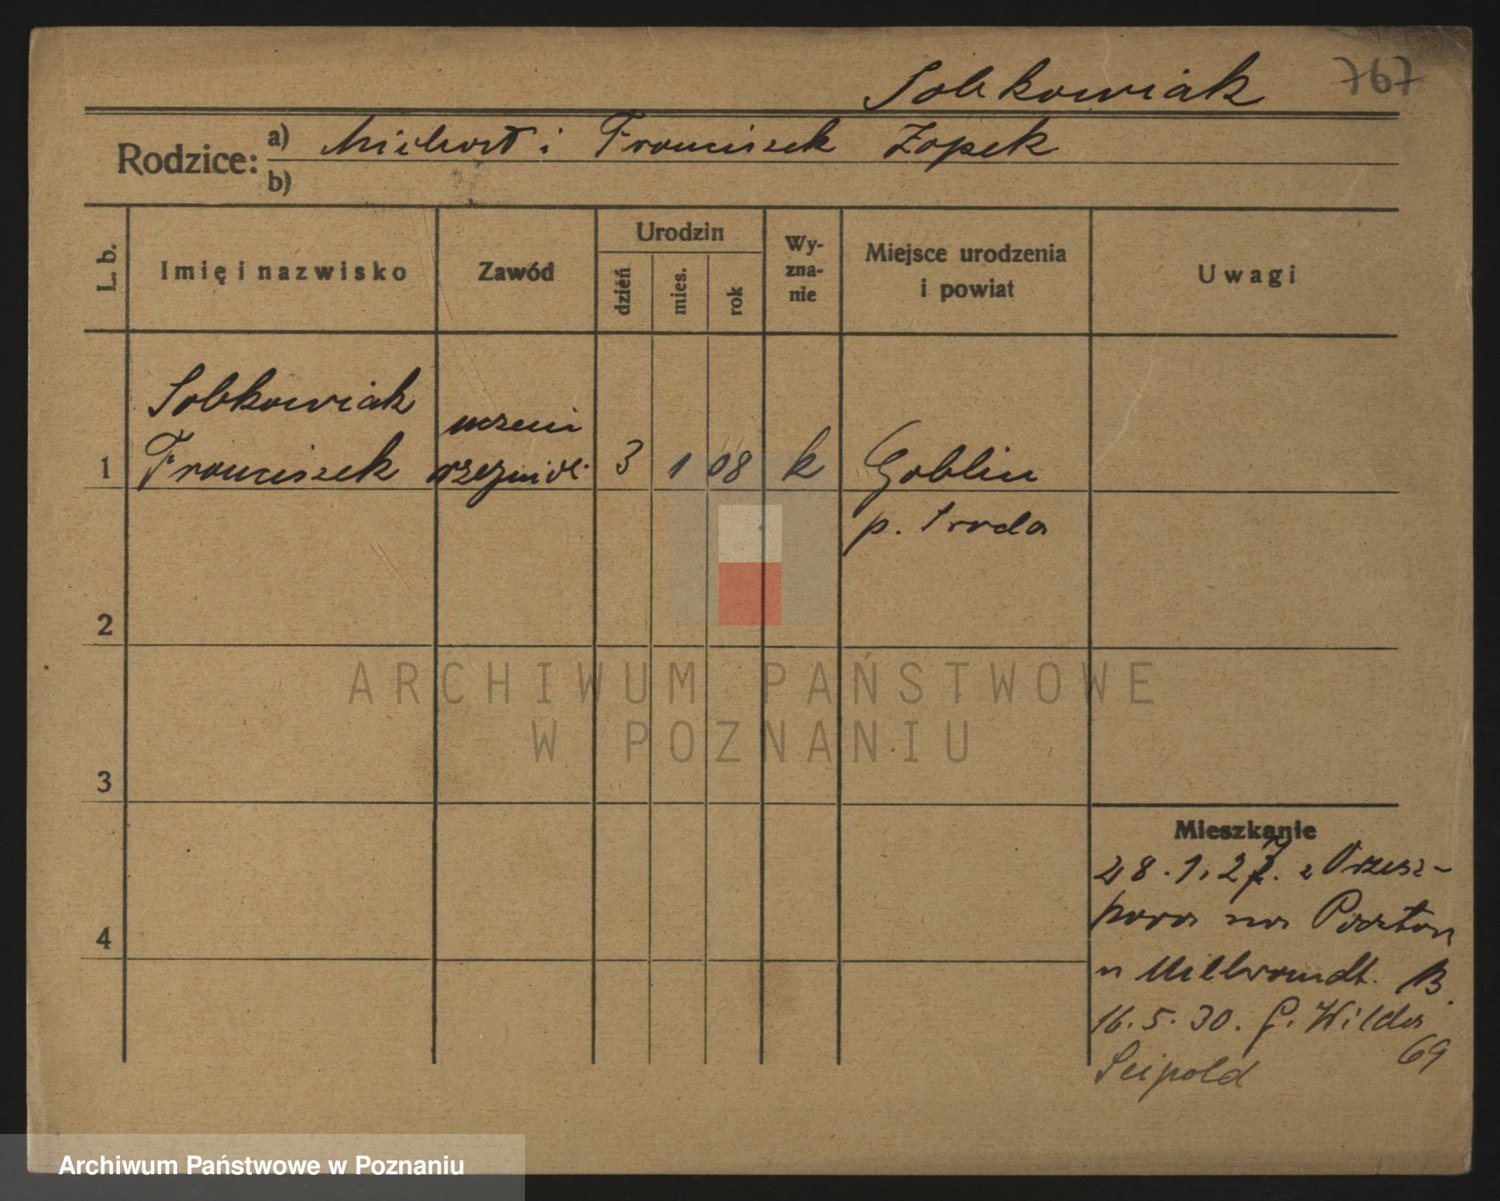 767
Sobkowiak
Rodzice: a) Michał i Franciszek Zopek
b)
L. b. Imię i nazwisko Zawód Urodzin dzień mies. rok Wy-zna-nie Miejsce urodzenia i powiat Uwagi
Sobkowiak uczeń
1 Franciszek rzeźnick. 3 1 08 k Goblin
p. Środa
2
3
Mieszkanie
28.1.27. z
na
4
16.5.30. G. Wilda
69
Seipold
ARCHIWUM PAŃSTWOWE
W POZNANIU
Archiwum Państwowe w Poznaniu